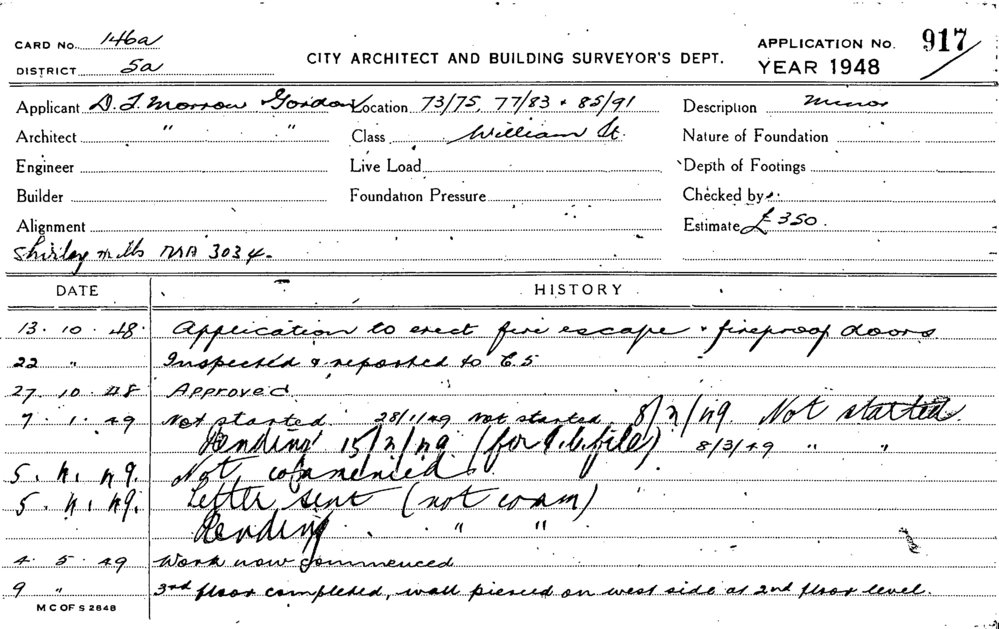 CARD No. 146a
DISTRICT 5a
CITY ARCHITECT AND BUILDING SURVEYOR'S DEPT.
APPLICATION No. 917
YEAR 1948
Applicant D. T. Morrow Gordon Location 73/75, 77/83 + 85/91 Description Minor
Architect " " Class William St. Nature of Foundation
Engineer Live Load Depth of Footings
Builder Foundation Pressure Checked by
Alignment Estimate £350.
Shirley Mills MA 3034.
DATE HISTORY
13. 10. 48. Application to erect fire escape + fireproof doors
22 " Inspected & reported to C.S
27. 10. 48 Approved
7. 1. 49 Not started 28/1/49 Not started 8/2/49. Not started.
Pending 15/2/49 (for file) 8/3/49 " "
5. 4. 49. Not commenced.
5. 4. 49. Letter sent (not comm)
Pending " "
4. 5. 49 Work now commenced
9 " 3rd floor completed, wall pierced on west side at 2nd floor level.
M C OF S 2848